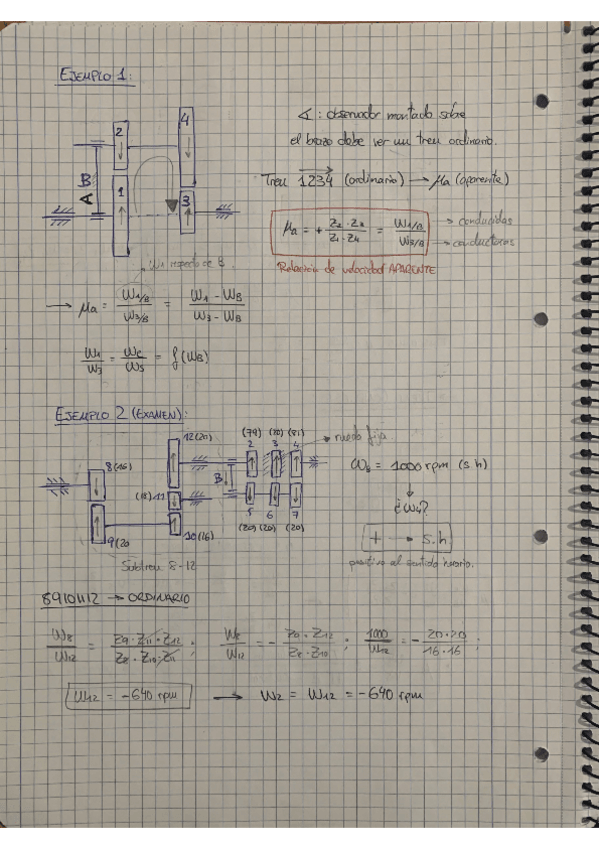 EJEMPLO 1:
2
4
B
A
1
3
∢ : observador montado sobre
el brazo debe ver un tren ordinario.
Tren 1234 (ordinario) → μa (aparente)
μa = + Z2 · Z3 / Z1 · Z4 = W1/B / W3/B
→ conducidas
→ conductoras
Relación de velocidad APARENTE
W1 respecto de B.
→ μa = W1/B / W3/B = W1 - WB / W3 - WB
W1 / W3 = We / Ws = f(WB)
EJEMPLO 2 (EXAMEN):
12(20)
(79) (20) (81)
2 3 4
rueda fija
8(16)
(18) 11
B
W8 = 1000 rpm (s.h)
¿W4?
5 6 7
(20) (20) (20)
9(20
10(16)
+ → s.h
positivo al sentido horario.
Subtren 8-12
89101112 → ORDINARIO
W8 / W12 = Z9 · Z11 · Z12 / Z8 · Z10 · Z11 ; W8 / W12 = - Z9 · Z12 / Z8 · Z10 ; 1000 / W12 = - 20·20 / 16·16 ;
W12 = -640 rpm → W2 = W12 = -640 rpm